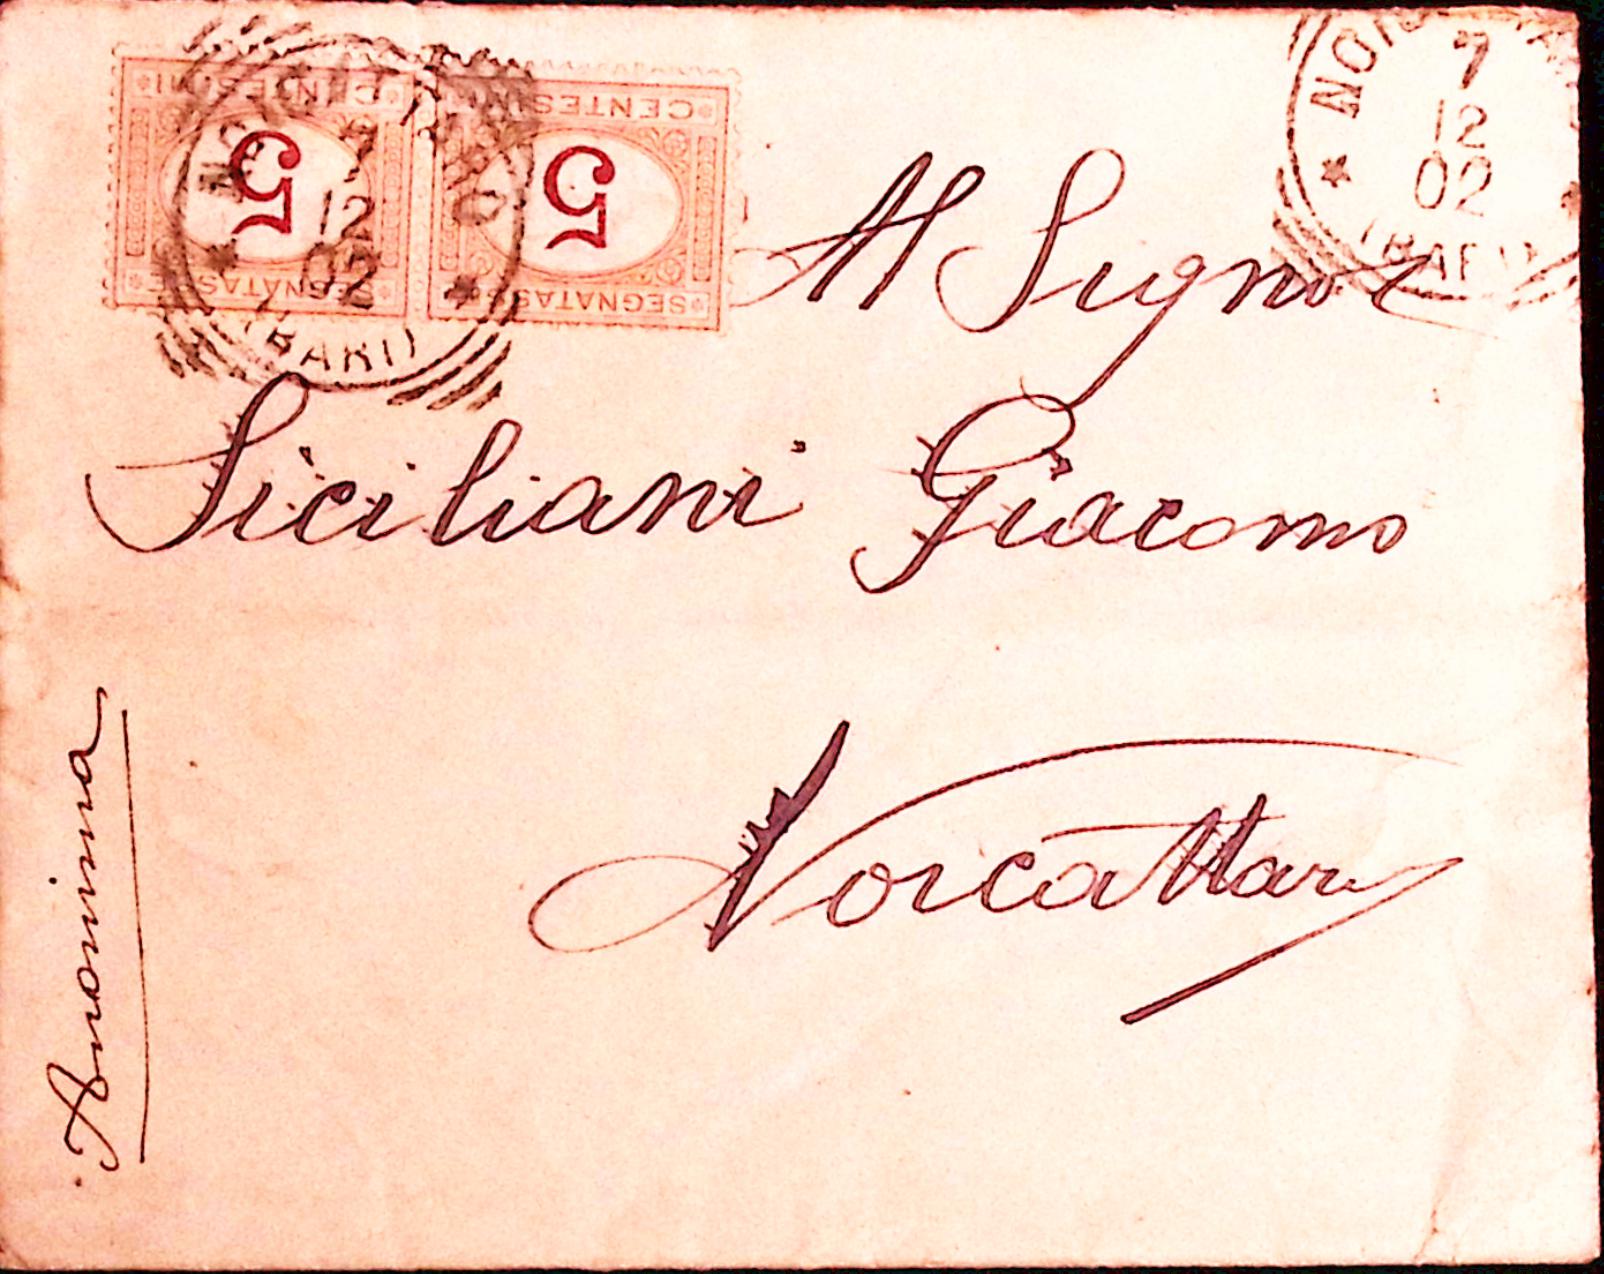 CENTESIMI
CENTESIMI
5
5
SEGNATASSE
SEGNATASSE
7
12
02
(BARI)
7
12
02
(BARI)
Al Signor
Siciliani Giacomo
Noicattaro
Anonima